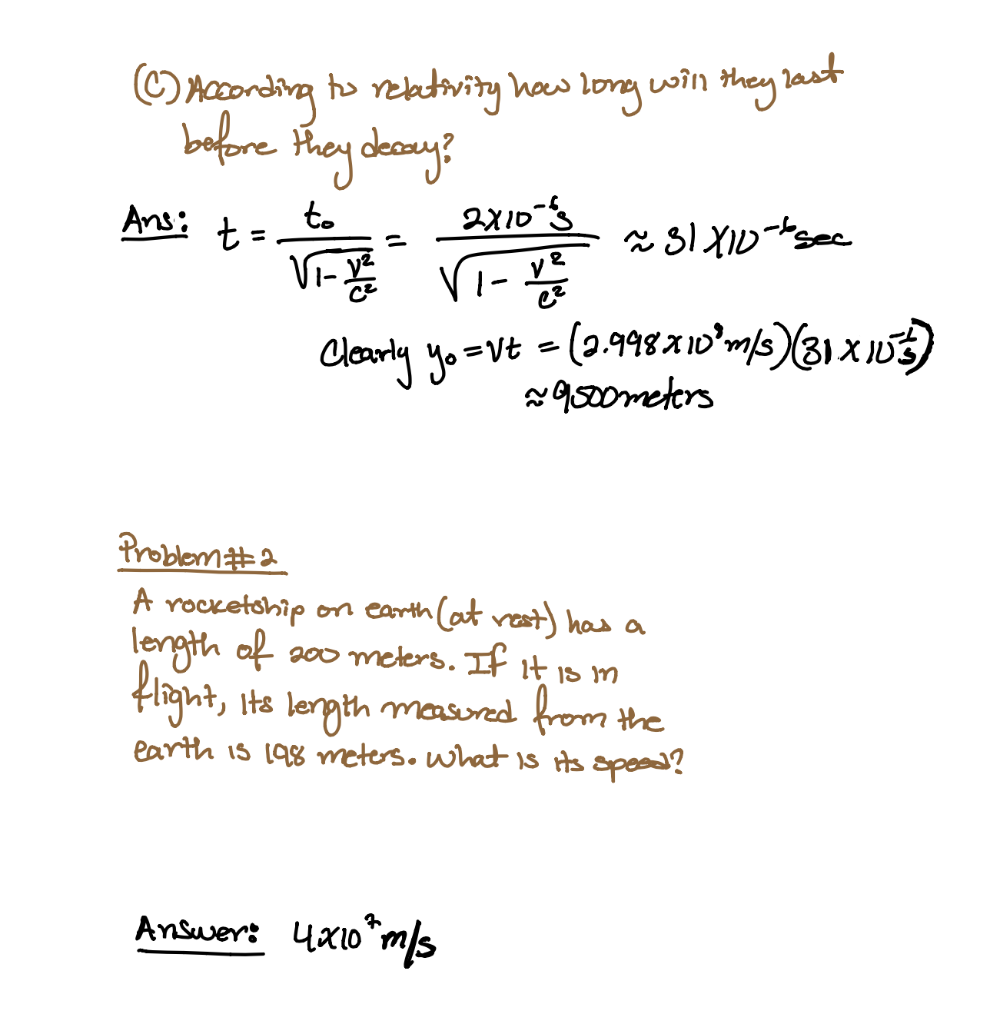 (C) According to relativity how long will they last
before they decay?
Ans: t = t₀/√(1-v²/c²) = 2x10⁻⁶s/√(1-v²/c²) ≈ 31 X10⁻⁶sec
Clearly y₀=vt = (2.998x10⁸m/s)(31x10⁻⁶s)
≈9500meters
Problem#2
A rocketship on earth (at rest) has a
length of 200 meters. If it is in
flight, its length measured from the
earth is 198 meters. What is its speed?
Answer: 4x10⁷m/s